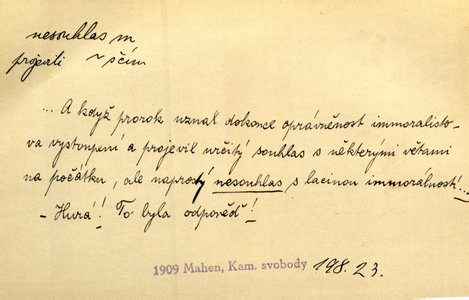 nesouhlas m
projeviti ~ s čím
... A když prorok uznal dokonce oprávněnost immoralisto-
va vystoupení a projevil určitý souhlas s některými větami
na počátku, ale naprostý nesouhlas s lacinou immorálností!...
- Hurá! To byla odpověď!
1909 Mahen, Kam. svobody 198.23.